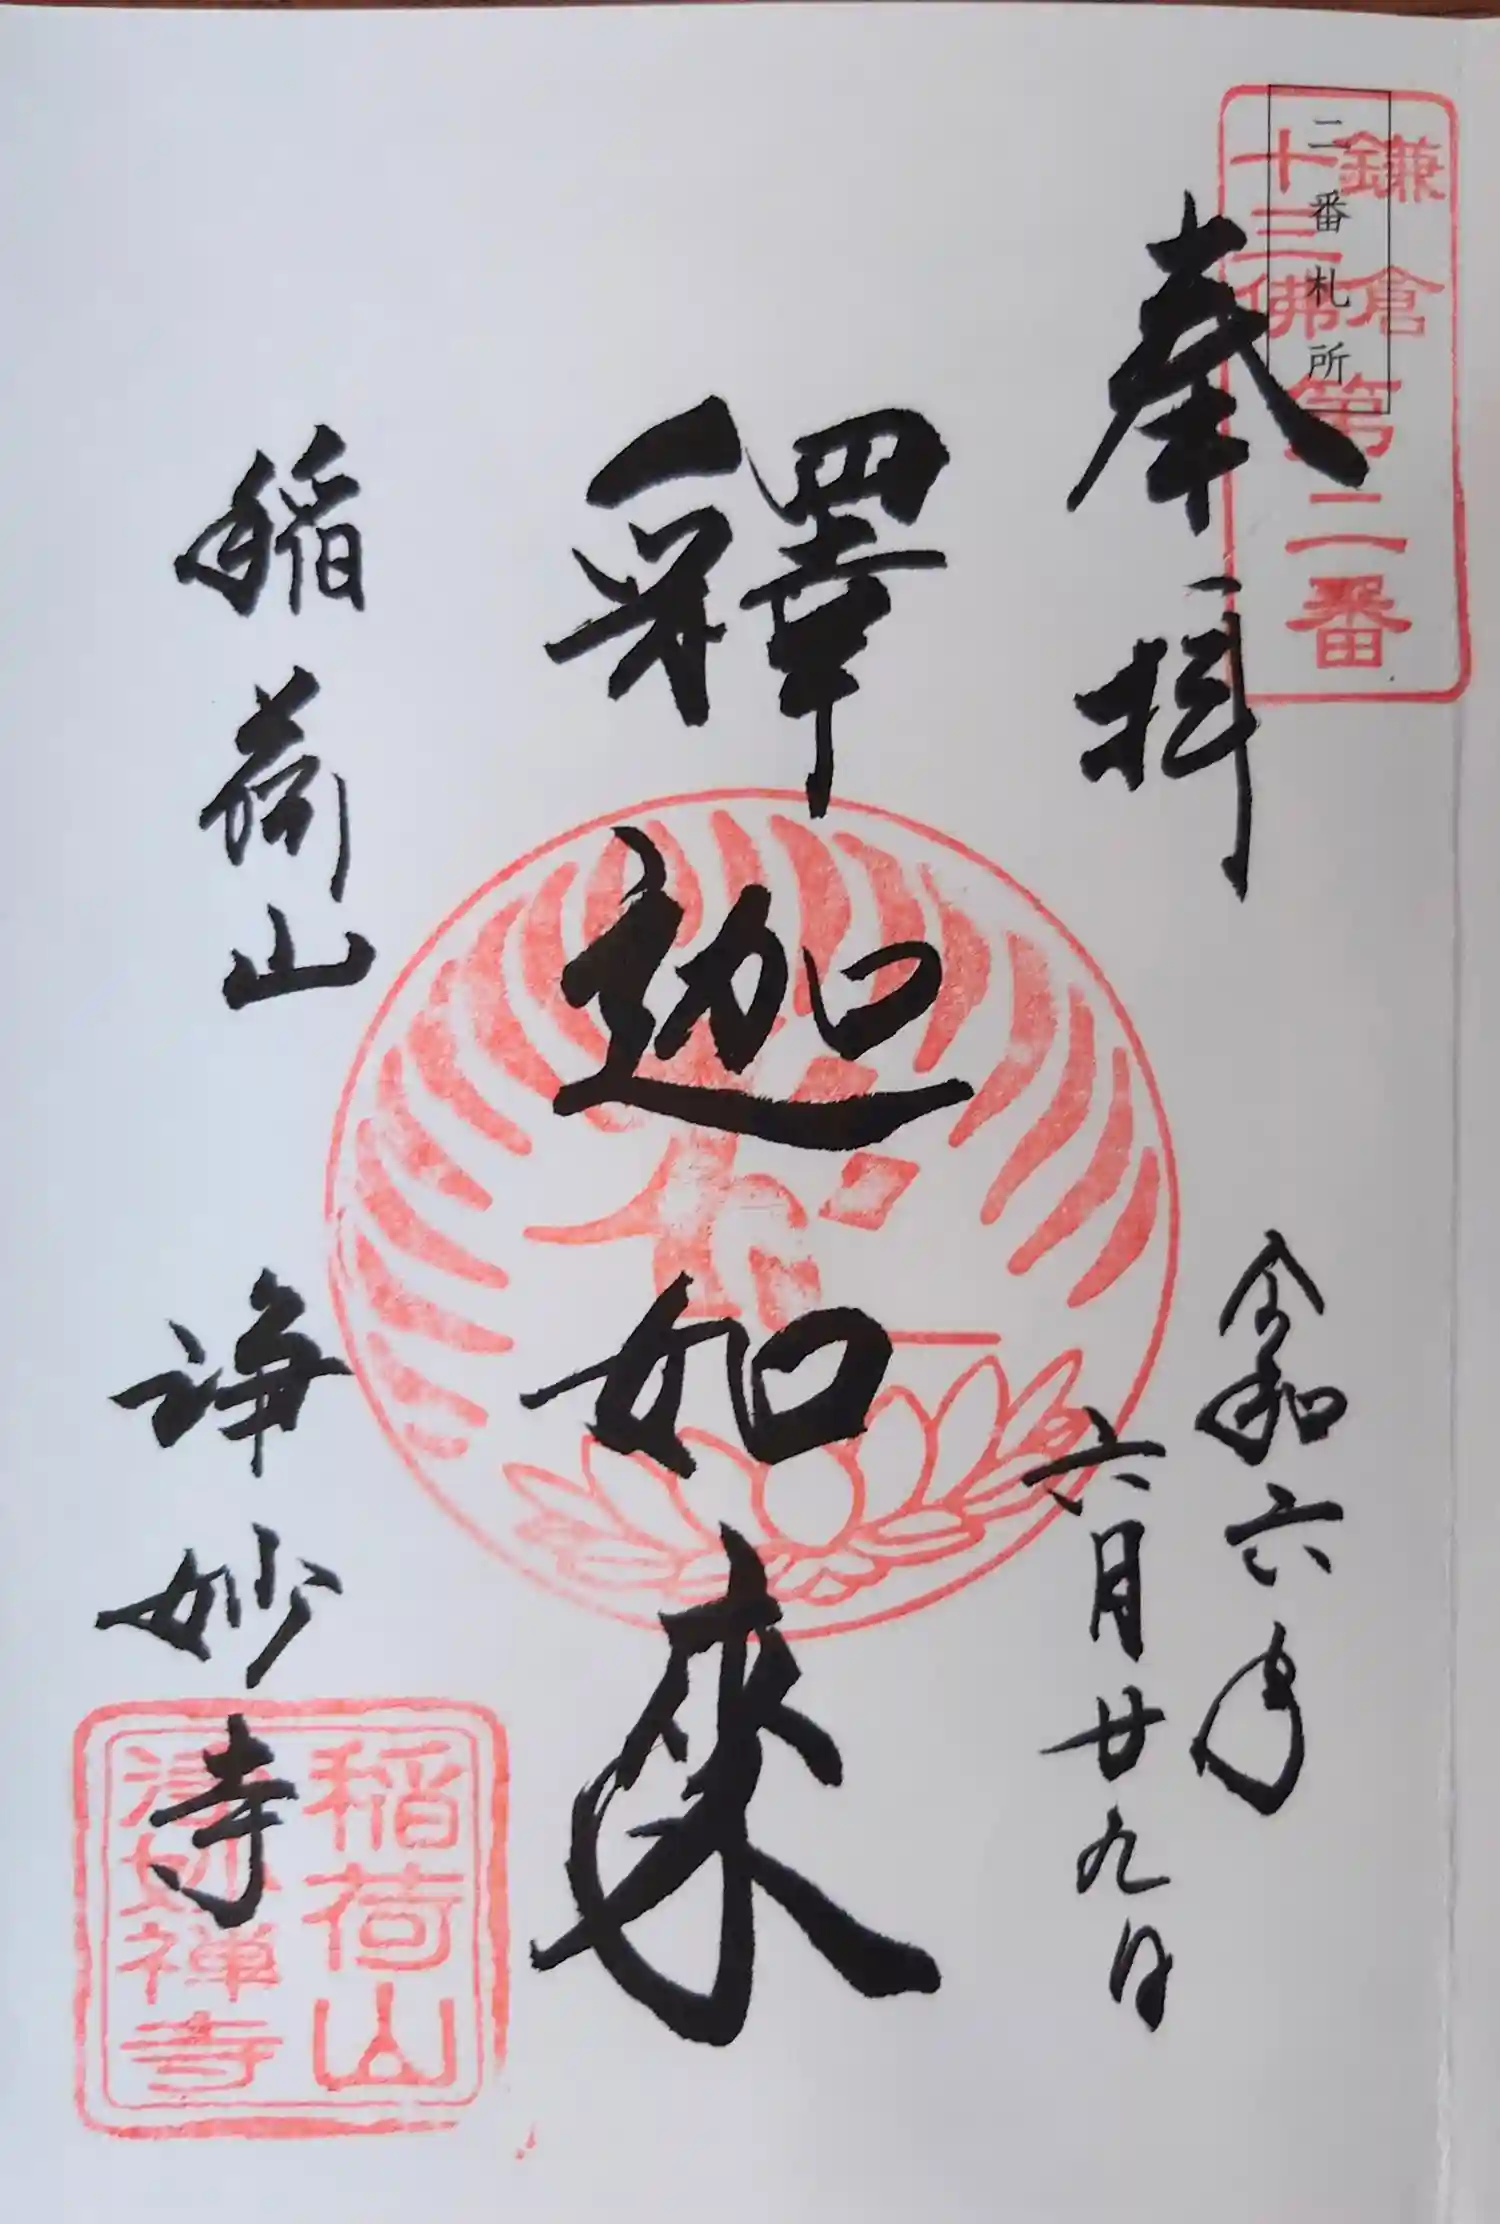 二番札所
鎌倉
十三佛
第二番
奉拝
令和六年
六月廿九日
釋迦如来
稲荷山
浄妙寺
稲荷山
浄妙禅寺